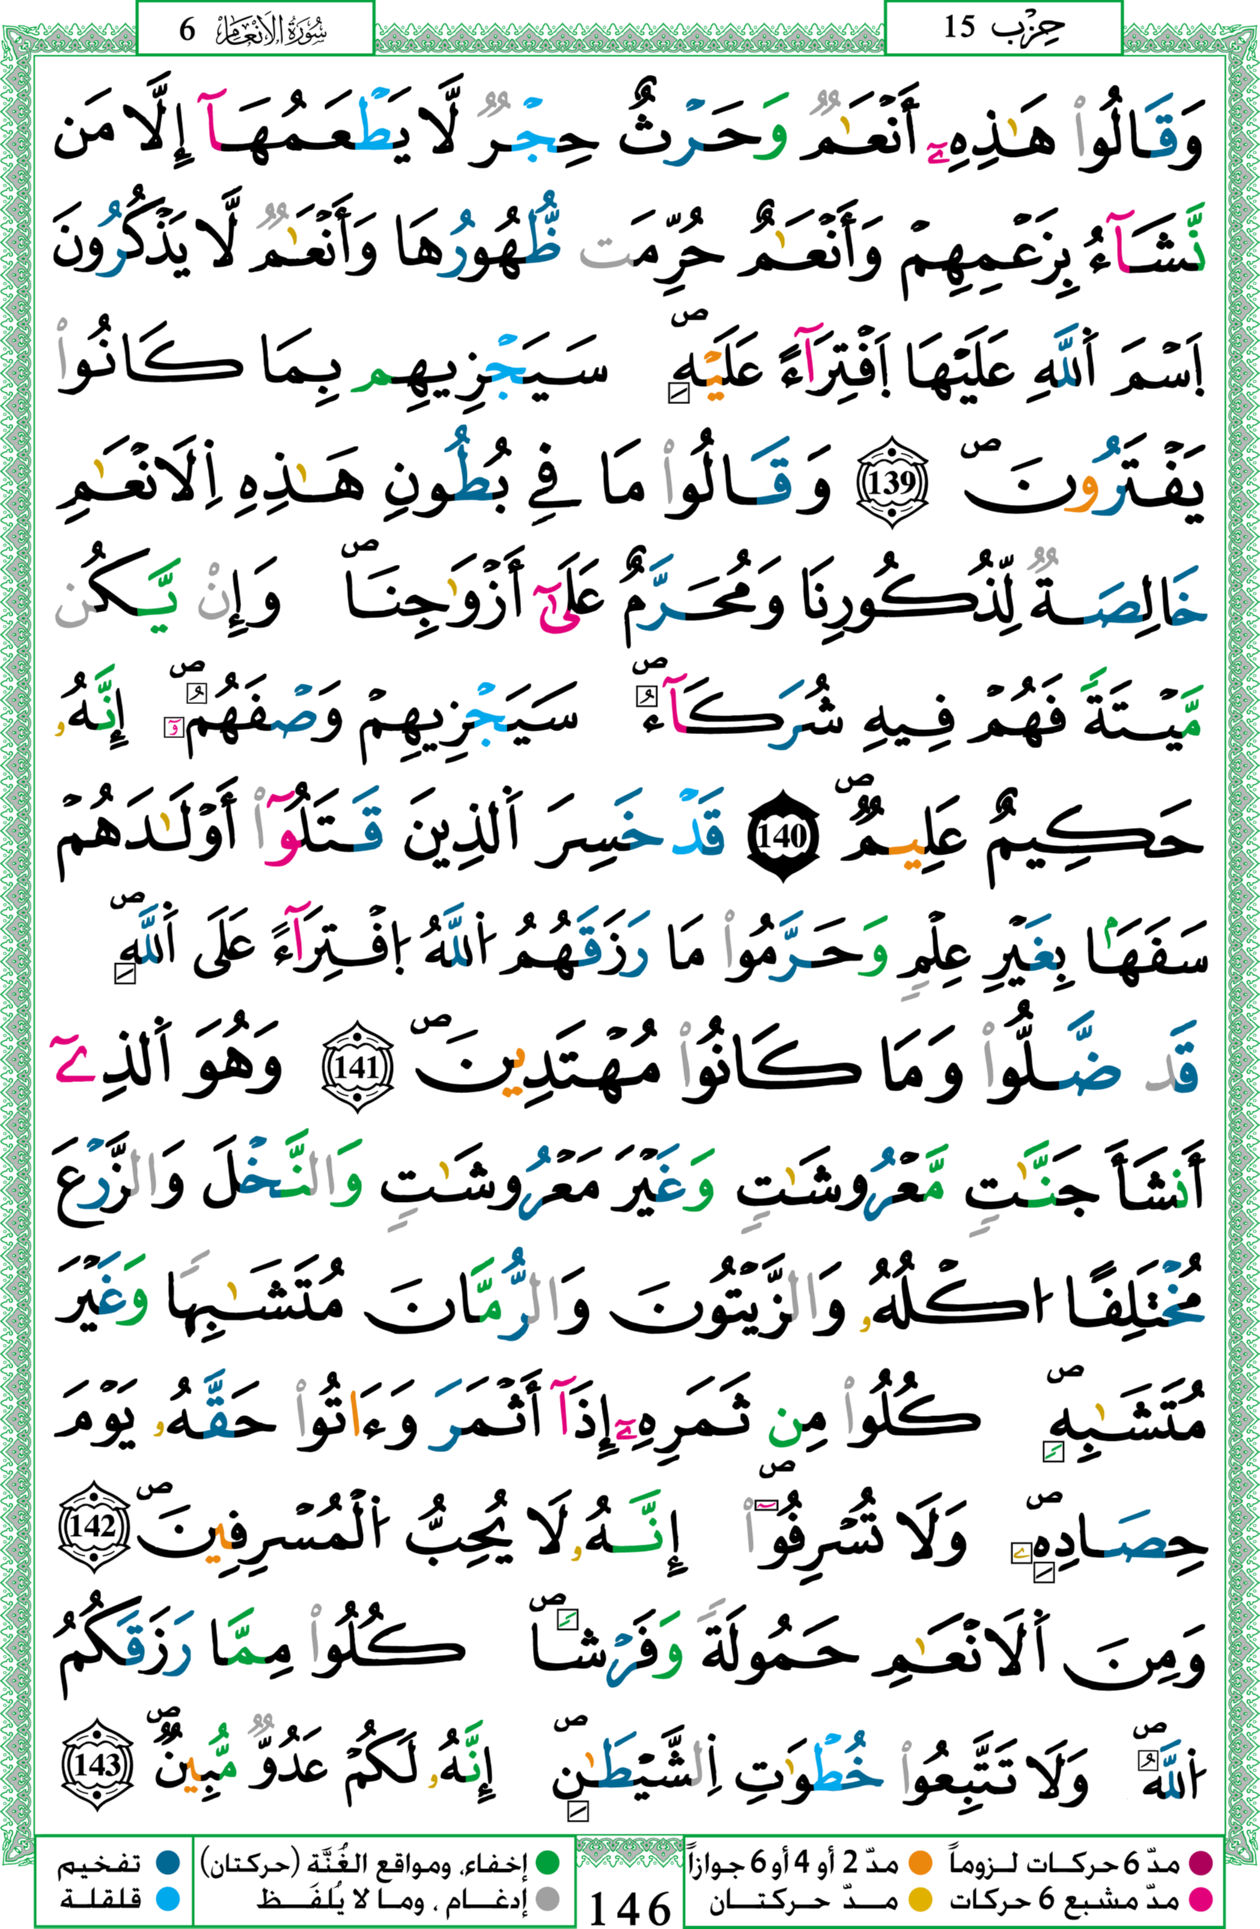 حِزْب 15
سُورَةُ الْأَنْعَامِ 6
وَقَالُواْ هَٰذِهِۦٓ أَنْعَٰمٌ وَحَرْثٌ حِجْرٌ لَّا يَطْعَمُهَآ إِلَّا مَن
نَّشَآءُ بِزَعْمِهِمْ وَأَنْعَٰمٌ حُرِّمَت ظُّهُورُهَا وَأَنْعَٰمٌ لَّا يَذْكُرُونَ
اَسْمَ اَللَّهِ عَلَيْهَا اَفْتِرَآءً عَلَيْهِ ۖ سَيَجْزِيهِم بِمَا كَانُواْ
يَفْتَرُونَ ۖ 139 وَقَالُواْ مَا فِے بُطُونِ هَٰذِهِ اِلَانْعَٰمِ
خَالِصَةٌ لِّذُكُورِنَا وَمُحَرَّمٌ عَلَىٰٓ أَزْوَٰجِنَا ۖ وَإِنْ يَّكُن
مَّيْتَةً فَهُمْ فِيهِ شُرَكَآءُ ۖ سَيَجْزِيهِمْ وَصْفَهُمُۥٓ ۖ إِنَّهُۥ
حَكِيمٌ عَلِيمٌ ۖ 140 قَدْ خَسِرَ اَلذِينَ قَتَلُوٓاْ أَوْلَٰدَهُمْ
سَفَهَاۢ بِغَيْرِ عِلْمٍ وَحَرَّمُواْ مَا رَزَقَهُمُ اُللَّهُ اُفْتِرَآءً عَلَى اَللَّهِ ۖ
قَد ضَّلُّواْ وَمَا كَانُواْ مُهْتَدِينَ ۖ 141 وَهُوَ اَلذِےٓ
أَنشَأَ جَنَّٰتٍ مَّعْرُوشَٰتٍ وَغَيْرَ مَعْرُوشَٰتٍ وَالنَّخْلَ وَالزَّرْعَ
مُخْتَلِفًا اُكْلُهُۥ وَالزَّيْتُونَ وَالرُّمَّانَ مُتَشَٰبِهًا وَغَيْرَ
مُتَشَٰبِهٍ ۖ كُلُواْ مِن ثَمَرِهِۦٓ إِذَآ أَثْمَرَ وَءَاتُواْ حَقَّهُۥ يَوْمَ
حِصَادِهِۦ ۖ وَلَا تُسْرِفُوٓاْ ۖ إِنَّهُۥ لَا يُحِبُّ اُلْمُسْرِفِينَ ۖ 142
وَمِنَ اَلَانْعَٰمِ حَمُولَةً وَفَرْشًا ۖ كُلُواْ مِمَّا رَزَقَكُمُ
اُللَّهُ ۖ وَلَا تَتَّبِعُواْ خُطْوَٰتِ اِلشَّيْطَٰنِ ۖ إِنَّهُۥ لَكُمْ عَدُوٌّ مُّبِينٌ ۖ 143
مدّ 6 حركات لزوماً مدّ 2 أو 4 أو 6 جوازاً
مدّ مشبع 6 حركات مدّ حركتان
146
إخفاء، ومواقع الغُنَّة (حركتان) تفخيم
إدغام ، وما لا يُلفَظ قلقلة